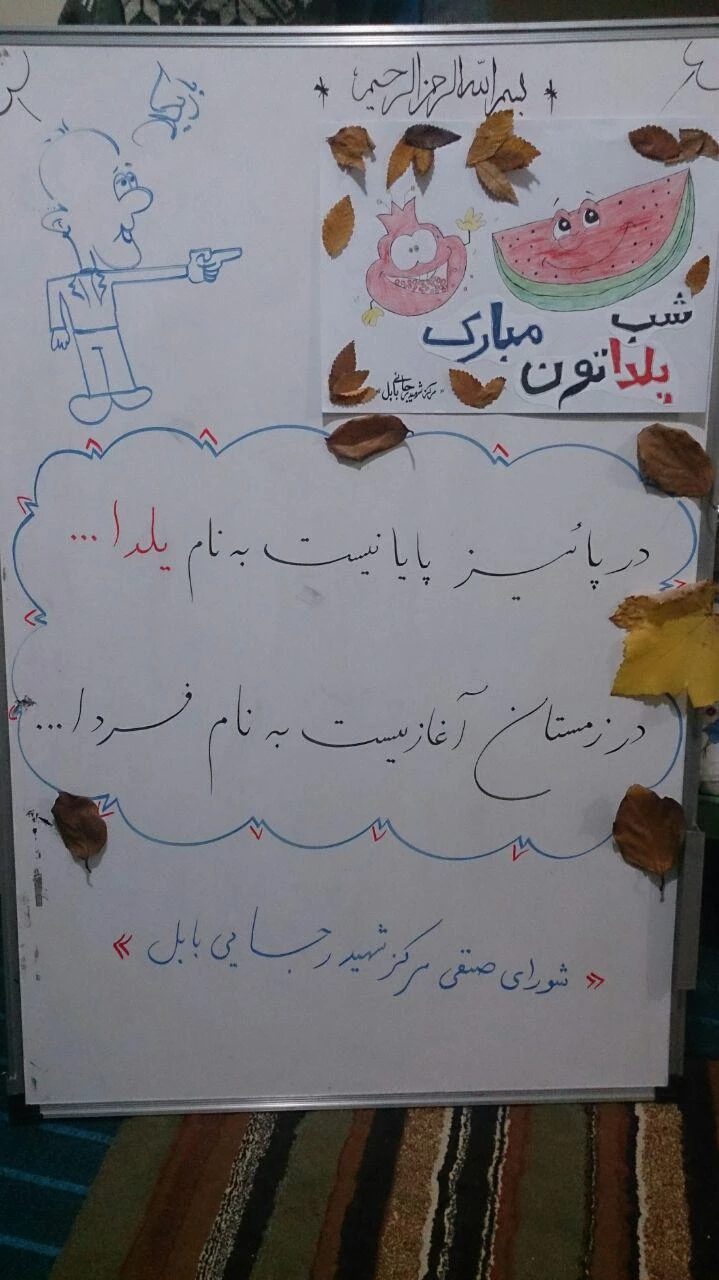 * بسم الله الرحمن الرحیم *
شب
یلداتون مبارک
مرکز شهید رجائی بابل
در پائیز پایانیست به نام یلدا ...
در زمستان آغازیست به نام فردا ...
« شورای صنفی مرکز شهید رجایی بابل »